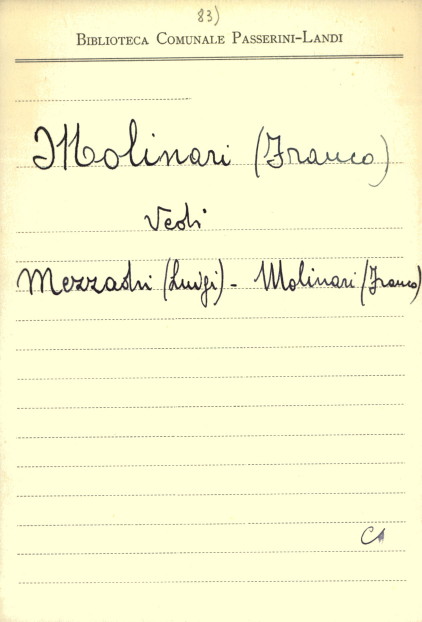 83)
BIBLIOTECA COMUNALE PASSERINI-LANDI
Molinari (Franco)
Vedi
Mezzadri (Luigi) - Molinari (Franco)